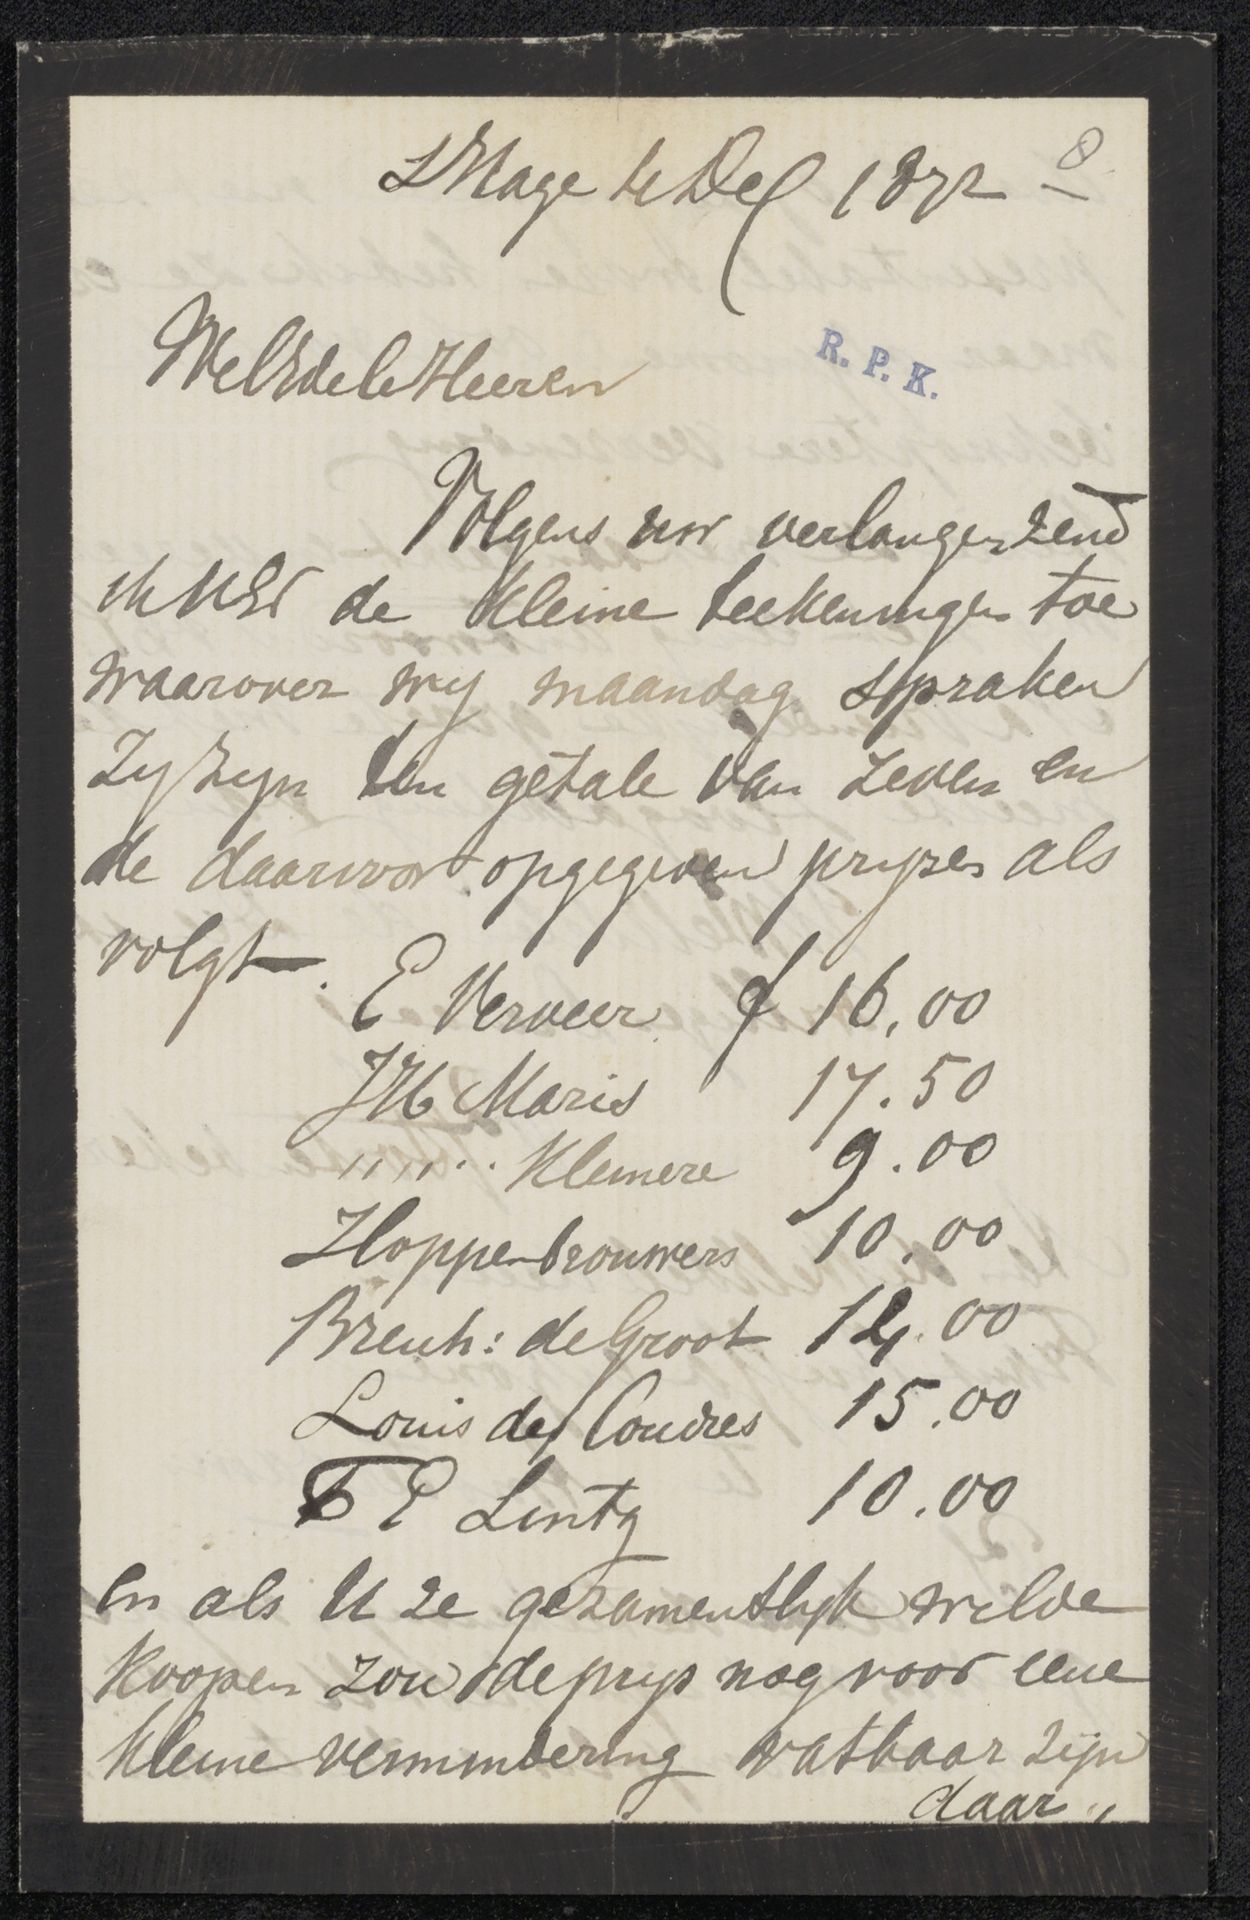 sHage 4 Dec 1872
8
WelEdele Heeren
R. P. K.
Volgens uw verlangen zend
ik UEd de kleine teekeningen toe
waarover wy maandag spraken
Zy zyn ten getale van zeven en
de daarvoor opgegeven pryzen als
volgt.
E Verveer f 16,00
JH Maris 17.50
" " " kleinere 9.00
Hoppenbrouwers 10,00
Breuh: de Groot 12.00
Louis des Coudres 15.00
F E Lintz 10.00
en als U ze gezamentlyk wilde
koopen zou de prys nog voor eene
kleine vermindering vatbaar zyn
daar